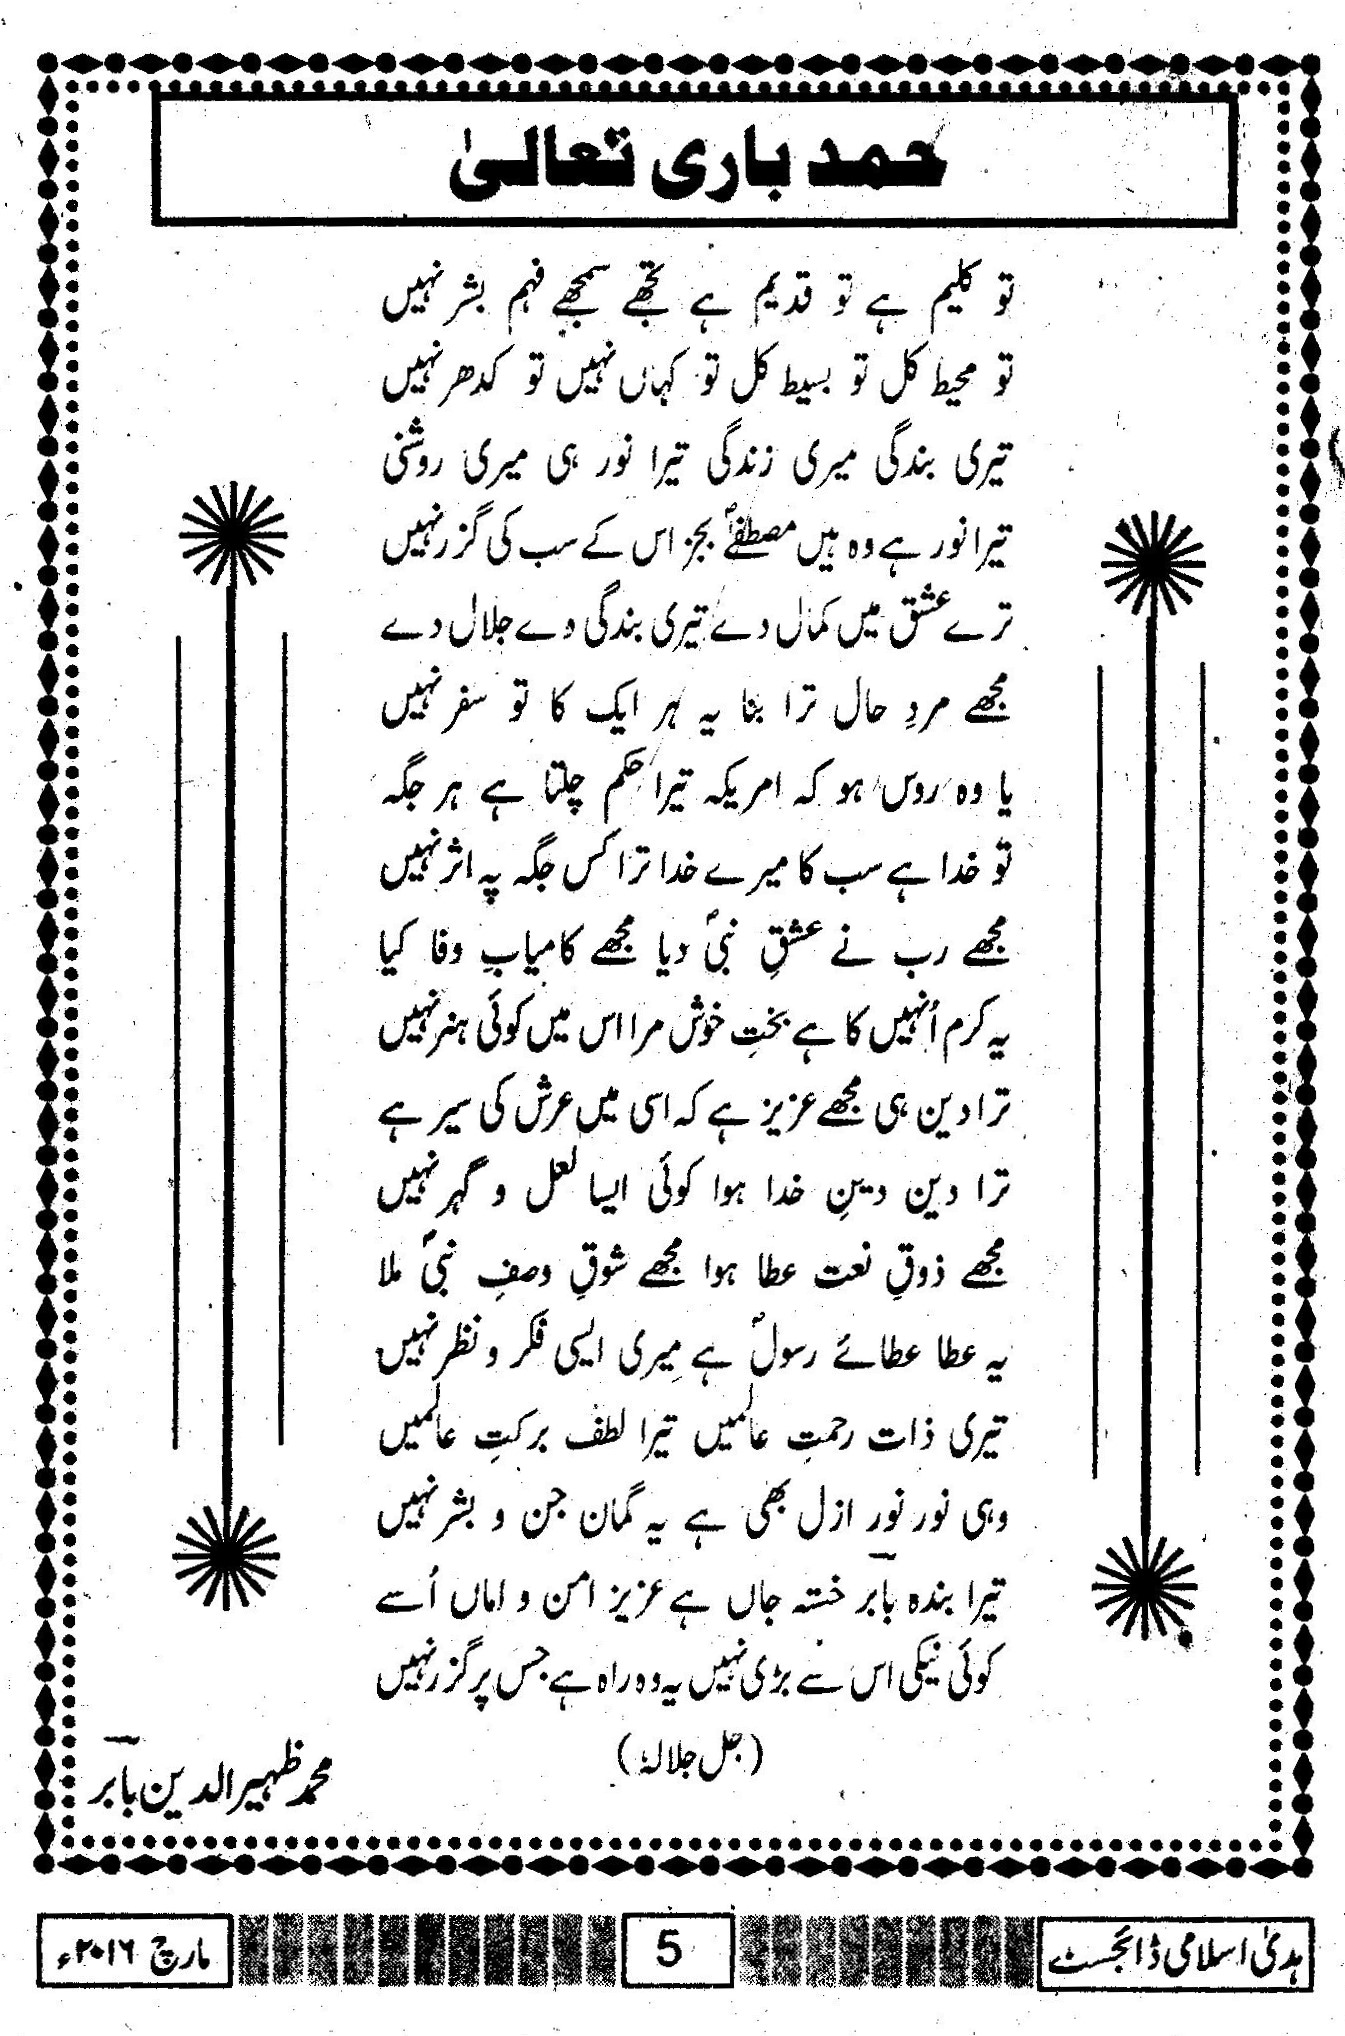 حمد باری تعالیٰ
تو کلیم ہے تو قدیم ہے تجھے سمجھے فہم بشر نہیں
تو محیط کل تو بسیط کل تو کہاں نہیں تو کدھر نہیں
تیری بندگی میری زندگی تیرا نور ہی میری روشنی
تیرا نور ہے وہ ہیں مصطفےٰؐ بجز اس کے سب کی گزر نہیں
ترے عشق میں کمال دے تیری بندگی دے جلال دے
مجھے مردِ حال ترا بنا یہ ہر ایک کا تو سفر نہیں
یا وہ روس ہو کہ امریکہ تیرا حکم چلتا ہے ہر جگہ
تو خدا ہے سب کا میرے خدا ترا کس جگہ پہ اثر نہیں
مجھے رب نے عشقِ نبیؐ دیا مجھے کامیابِ وفا کیا
یہ کرم اُنہیں کا ہے بختِ خوش مرا اس میں کوئی ہنر نہیں
ترا دین ہی مجھے عزیز ہے کہ اسی میں عرش کی سیر ہے
ترا دین دینِ خدا ہوا کوئی ایسا لعل و گہر نہیں
مجھے ذوقِ نعت عطا ہوا مجھے شوقِ وصفِ نبیؐ ملا
یہ عطا عطائے رسولؐ ہے مِیری ایسی فکر و نظر نہیں
تیری ذات رحمتِ عالمیں تیرا لطف برکتِ عالمیں
وہی نور نورِ ازل بھی ہے یہ گمان جن و بشر نہیں
تیرا بندہ بابر خستہ جاں ہے عزیز امن و اماں اُسے
کوئی نیکی اس سے بڑی نہیں یہ وہ راہ ہے جس پر گزر نہیں
(جل جلالہٗ)
محمد ظہیر الدین بابر
ہدیٰ اسلامی ڈائجسٹ
5
مارچ ۲۰۱۶ء